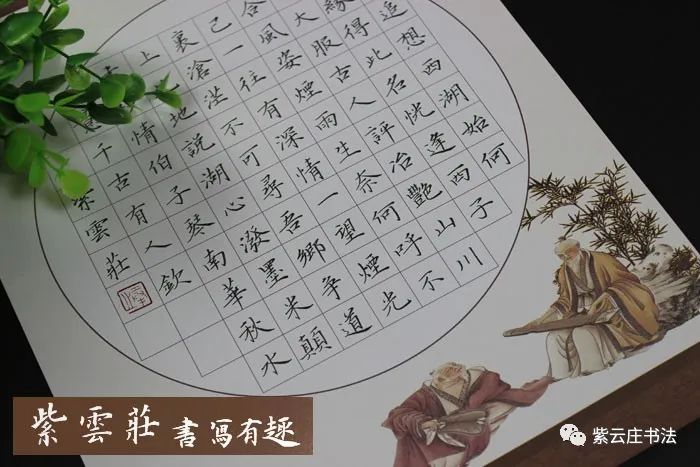 追想西湖始何
緣得此名恍逢西子
大服古人評冶豔山川
合風姿煙雨生奈何呼不
己一往有深情一望煙光
裏滄茫不可尋吾鄉爭道
上地說湖心潑墨米顛
情伯子琴南華秋水
千古有人欽
紫雲莊
紫雲莊書寫有趣
紫云庄书法